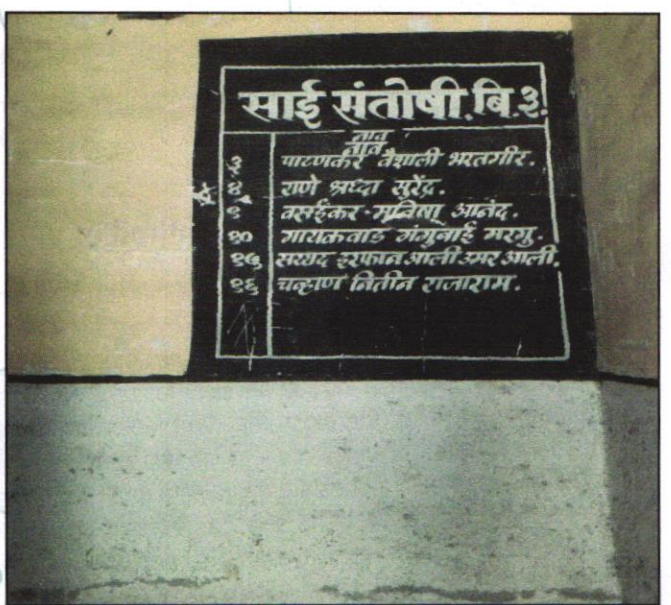 साई संतोषी.बि.३.
नाव
नाव
३ पाटणकर वैशाली भरतगीर.
राणे श्रध्दा सुरेंद्र.
वसईकर मनिषा आनंद.
१० गायकवाड गंगुबाई मरगु.
१५ सय्यद इरफान आली उमर आली.
१६ चव्हाण नितीन राजाराम.